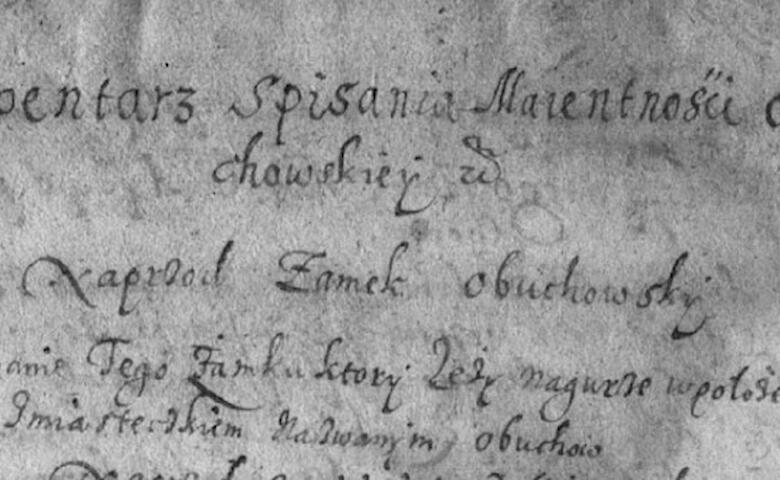 pentarz Spisania Maientności O
chowskiey
Naprzod Zamek obuchowski
anie Tego Zamku ktory Leży nagurze wpołoże
Zmiasteczkiem Nazwanym obuchow